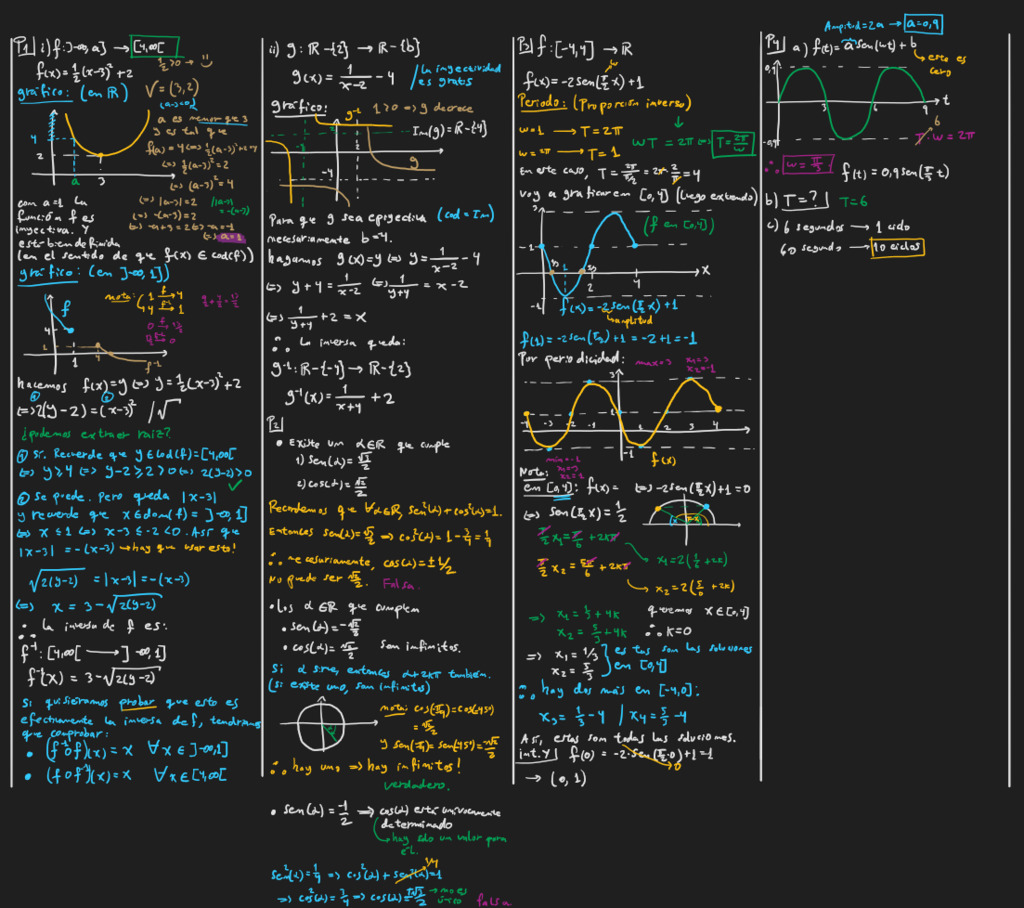 P1 i) f: ]-∞, a] → [4,∞[
f(x) = 1/2 (x-3)² + 2
1/2 > 0 → ∪
gráfico: (en ℝ)
V = (3,2)
(a->=0)
a es menor que 3
y es tal que
f(a) = 4 ⇔ 1/2(a-3)²+2=4
⇔ 1/2(a-3)² = 2
⇔ (a-3)² = 4
⇔ |a-3| = 2
|a-3| = -(a-3)
⇔ -(a-3) = 2
⇔ -a+3 = 2 ⇔ -a = -1
⇔ a = 1
4
2
a
3
con a=1 la
función f es
inyectiva. Y
está bien definida
(en el sentido de que f(x) ∈ cod(f))
gráfico: (en ]-∞,1])
f
nota: 1 →f 4
4 →f⁻¹ 1
4
1
1
4
f⁻¹
hacemos f(x) = y ⇔ y = 1/2(x-3)² + 2
⇔ 2(y-2) = (x-3)² /√
¿podemos extraer raíz?
① Sí. Recuerde que y ∈ Cod(f) = [4,∞[
⇔ y ≥ 4 ⇔ y-2 ≥ 2 > 0 ⇔ 2(y-2) > 0
② Se puede. Pero queda |x-3|
y recuerde que x ∈ dom(f) = ]-∞,1]
⇔ x ≤ 1 ⇔ x-3 ≤ -2 < 0. Así que
|x-3| = -(x-3) → hay que usar esto!
√2(y-2) = |x-3| = -(x-3)
⇔ x = 3 - √2(y-2)
∴ La inversa de f es:
f⁻¹: [4,∞[ → ]-∞,1]
f⁻¹(x) = 3 - √2(y-2)
Si quisieramos probar que esto es
efectivamente la inversa de f, tendríamos
que comprobar:
• (f⁻¹ o f)(x) = x ∀x ∈ ]-∞,1]
• (f o f⁻¹)(x) = x ∀x ∈ [4,∞[
ii) g: ℝ-{2} → ℝ-{b}
g(x) = 1/(x-2) - 4
/La inyectividad
es gratis
gráfico:
1>0 → g decrece
g⁻¹
Im(g) = ℝ-{4}
-4
g
Para que g sea epiyectiva (cod = Im)
necesariamente b=4.
hagamos g(x) = y ⇔ y = 1/(x-2) - 4
⇔ y+4 = 1/(x-2) ⇔ 1/(y+4) = x-2
⇔ 1/(y+4) + 2 = x
∴ La inversa queda:
g⁻¹: ℝ-{-4} → ℝ-{2}
g⁻¹(x) = 1/(x+4) + 2
P2
• Existe un α∈ℝ que cumple
1) sen(α) = √3/2
2) cos(α) = √2/2
Recordemos que ∀α∈ℝ, sen²(α) + cos²(α) = 1.
Entonces sen(α) = √3/2 ⇒ cos²(α) = 1 - 3/4 = 1/4
∴ necesariamente, cos(α) = ± 1/2
No puede ser √2/2. Falsa.
• Los α ∈ ℝ que cumplen
• sen(α) = -√2/2
• cos(α) = √2/2 Son infinitos.
Si α sirve, entonces α+2kπ también.
(si existe uno, son infinitos)
nota: cos(-π/4) = cos(-45°)
= √2/2
y sen(-π/4) = sen(-45°) = -√2/2
∴ hay uno ⇒ hay infinitos!
verdadero.
• sen(α) = -1/2 ⇒ cos(α) está unívocamente
determinado
→ hay solo un valor para
él.
sen²(α) = 1/4 ⇒ cos²(α) + sen²(α) = 1
1/4
⇒ cos²(α) = 3/4 ⇒ cos(α) = ±√3/2 → no es
único
falsa
P3 f: [-4,4] → ℝ
w
f(x) = -2sen(π/2 x) + 1
Periodo: (Proporción inversa)
w=1 → T = 2π
w=2π → T = 1
wT = 2π ⇔ T = 2π/w
en este caso, T = 2π/(π/2) = 2π·2/π = 4
voy a graficar en [0,4] (luego extiendo)
3
(f en [0,4])
1
2
4
x
-1
f(x) = -2sen(π/2 x) + 1
amplitud
f(1) = -2sen(π/2) + 1 = -2+1 = -1
Por periodicidad:
max=3 x₁=3
x₂=-1
3
-4 -3 -2 -1
1 2 3 4
-1
min=-1
x₁=-3
x₂=1
f(x)
Nota:
en [0,4]: f(x)= ⇔ -2sen(π/2 x)+1 = 0
⇔ sen(π/2 x) = 1/2
π/2 x₁ = π/6 + 2kπ
→ x₁ = 2(1/6 + 2k)
π/2 x₂ = 5π/6 + 2kπ
→ x₂ = 2(5/6 + 2k)
⇒ x₁ = 1/3 + 4k
x₂ = 5/3 + 4k
queremos x ∈ [0,4]
∴ k=0
⇒ x₁ = 1/3
x₂ = 5/3
estas son las soluciones
en [0,4]
∴ hay dos más en [-4,0]:
x₃ = 1/3 - 4 / x₄ = 5/3 - 4
Así, estas son todas las soluciones.
int. Y/ f(0) = -2·sen(π/2·0)+1 = 1
0
→ (0, 1)
Amplitud = 2a → a=0,9
P4 a) f(t) = a sen(wt) + b
→ este es
cero
0,9
3
6
9
t
-0,9
T·w = 2π
6
∴ w = π/3
f(t) = 0,9 sen(π/3 t)
b) T = ? T = 6
c) 6 segundos → 1 ciclo
60 segundo → 10 ciclos